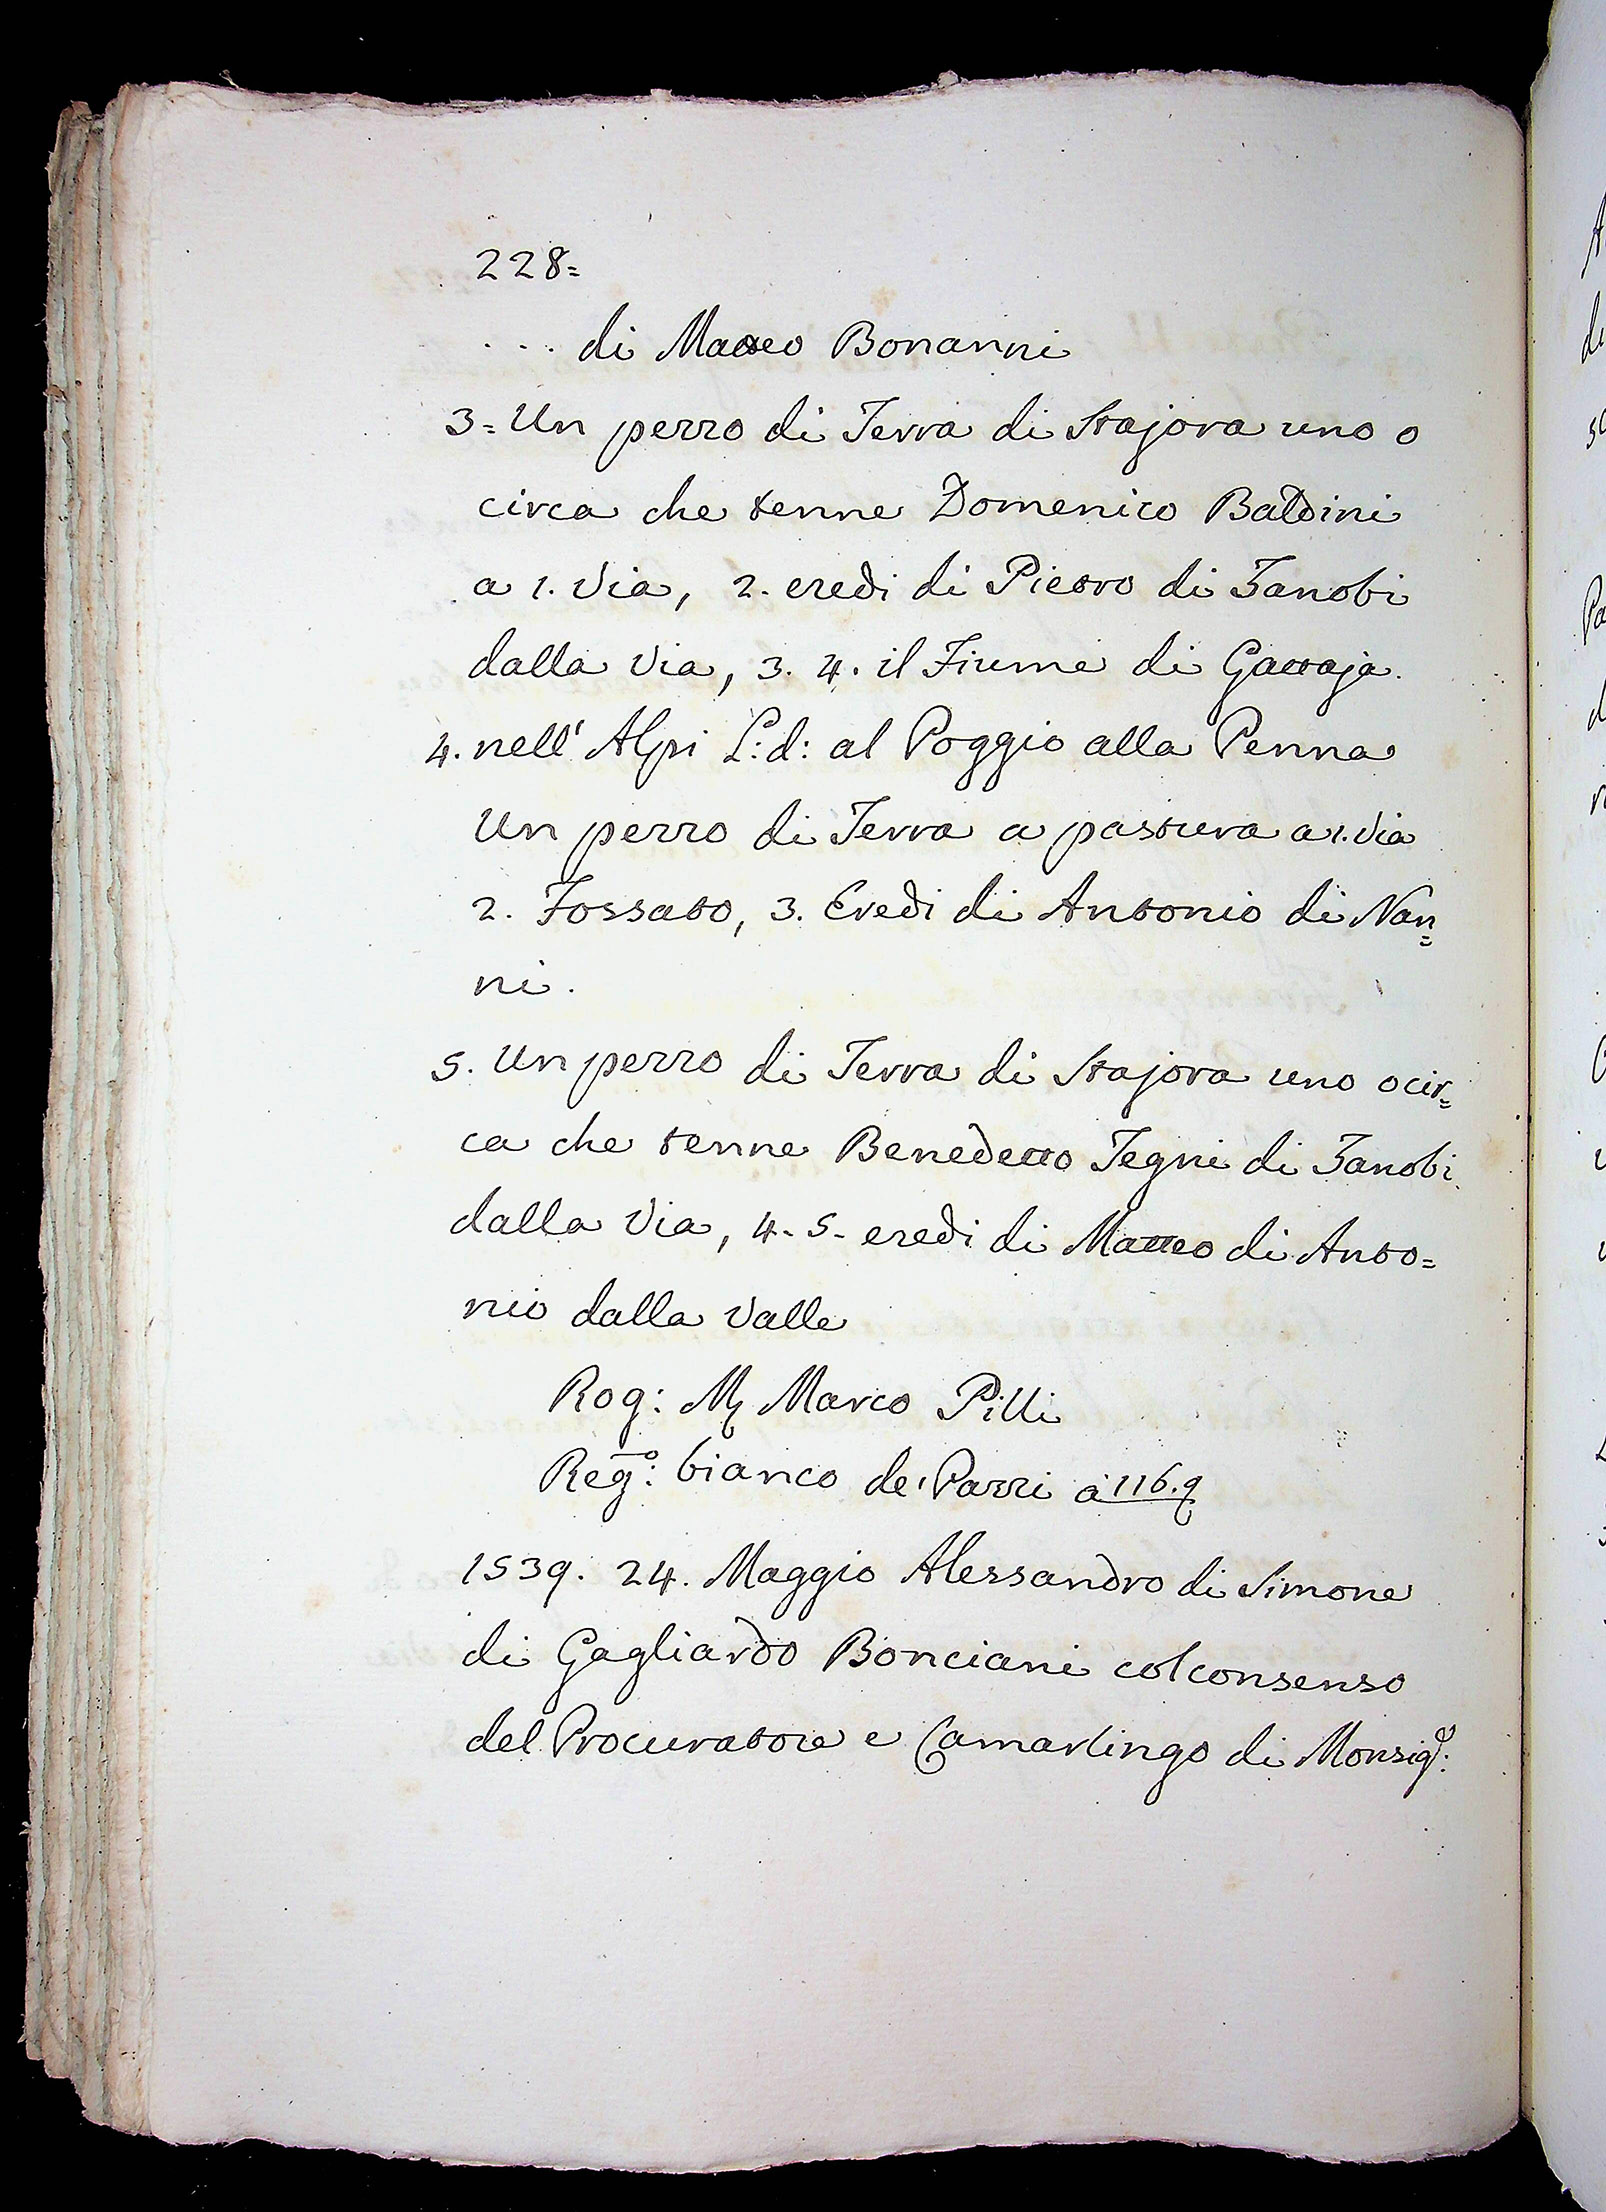 228=
... di Matteo Bonanni
3= Un pezzo di Terra di Stajora uno o
circa che tenne Domenico Baldini
a 1. Via, 2. eredi di Pietro di Zanobi
dalla Via, 3. 4. il Fiume di Gattaja.
4. nell' Alpi L: d: al Poggio alla Penna
Un pezzo di Terra a pastura a 1. Via
2. Fossato, 3. Eredi di Antonio di Nan=
ni.
5. Un pezzo di Terra di Stajora uno o cir=
ca che tenne Benedetto Tegni di Zanobi
dalla Via, 4. 5. eredi di Matteo di Anto=
nio dalla Valle
Rog: Marco Pilli
Reg:o bianco de' Pazzi a 116.
1539. 24. Maggio Alessandro di Simone
di Gagliardo Bonciani col consenso
del Procuratore e Camarlingo di Monsig:e